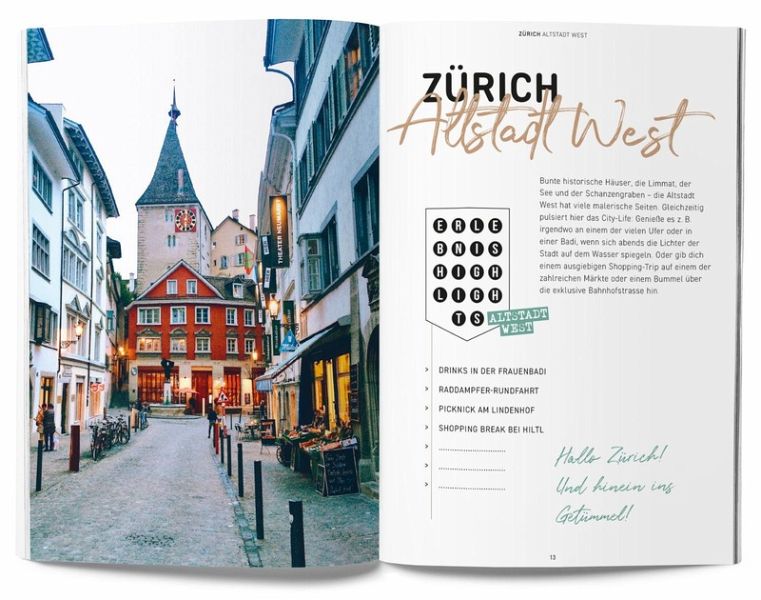 THEATER NEUMARKT
ZÜRICH ALTSTADT WEST
ZÜRICH
Altstadt West
Bunte historische Häuser, die Limmat, der
See und der Schanzengraben – die Altstadt
West hat viele malerische Seiten. Gleichzeitig
pulsiert hier das City-Life: Genieße es z. B.
irgendwo an einem der vielen Ufer oder in
einer Badi, wenn sich abends die Lichter der
Stadt auf dem Wasser spiegeln. Oder gib dich
einem ausgiebigen Shopping-Trip auf einem der
zahlreichen Märkte oder einem Bummel über
die exklusive Bahnhofstrasse hin.
ERLE
BNIS
HIGH
LIGH
TS
ALTSTADT
WEST
> DRINKS IN DER FRAUENBADI
> RADDAMPFER-RUNDFAHRT
> PICKNICK AM LINDENHOF
> SHOPPING BREAK BEI HILTL
> ........................
> ........................
> ........................
Hallo Zürich!
Und hinein ins
Getümmel!
13